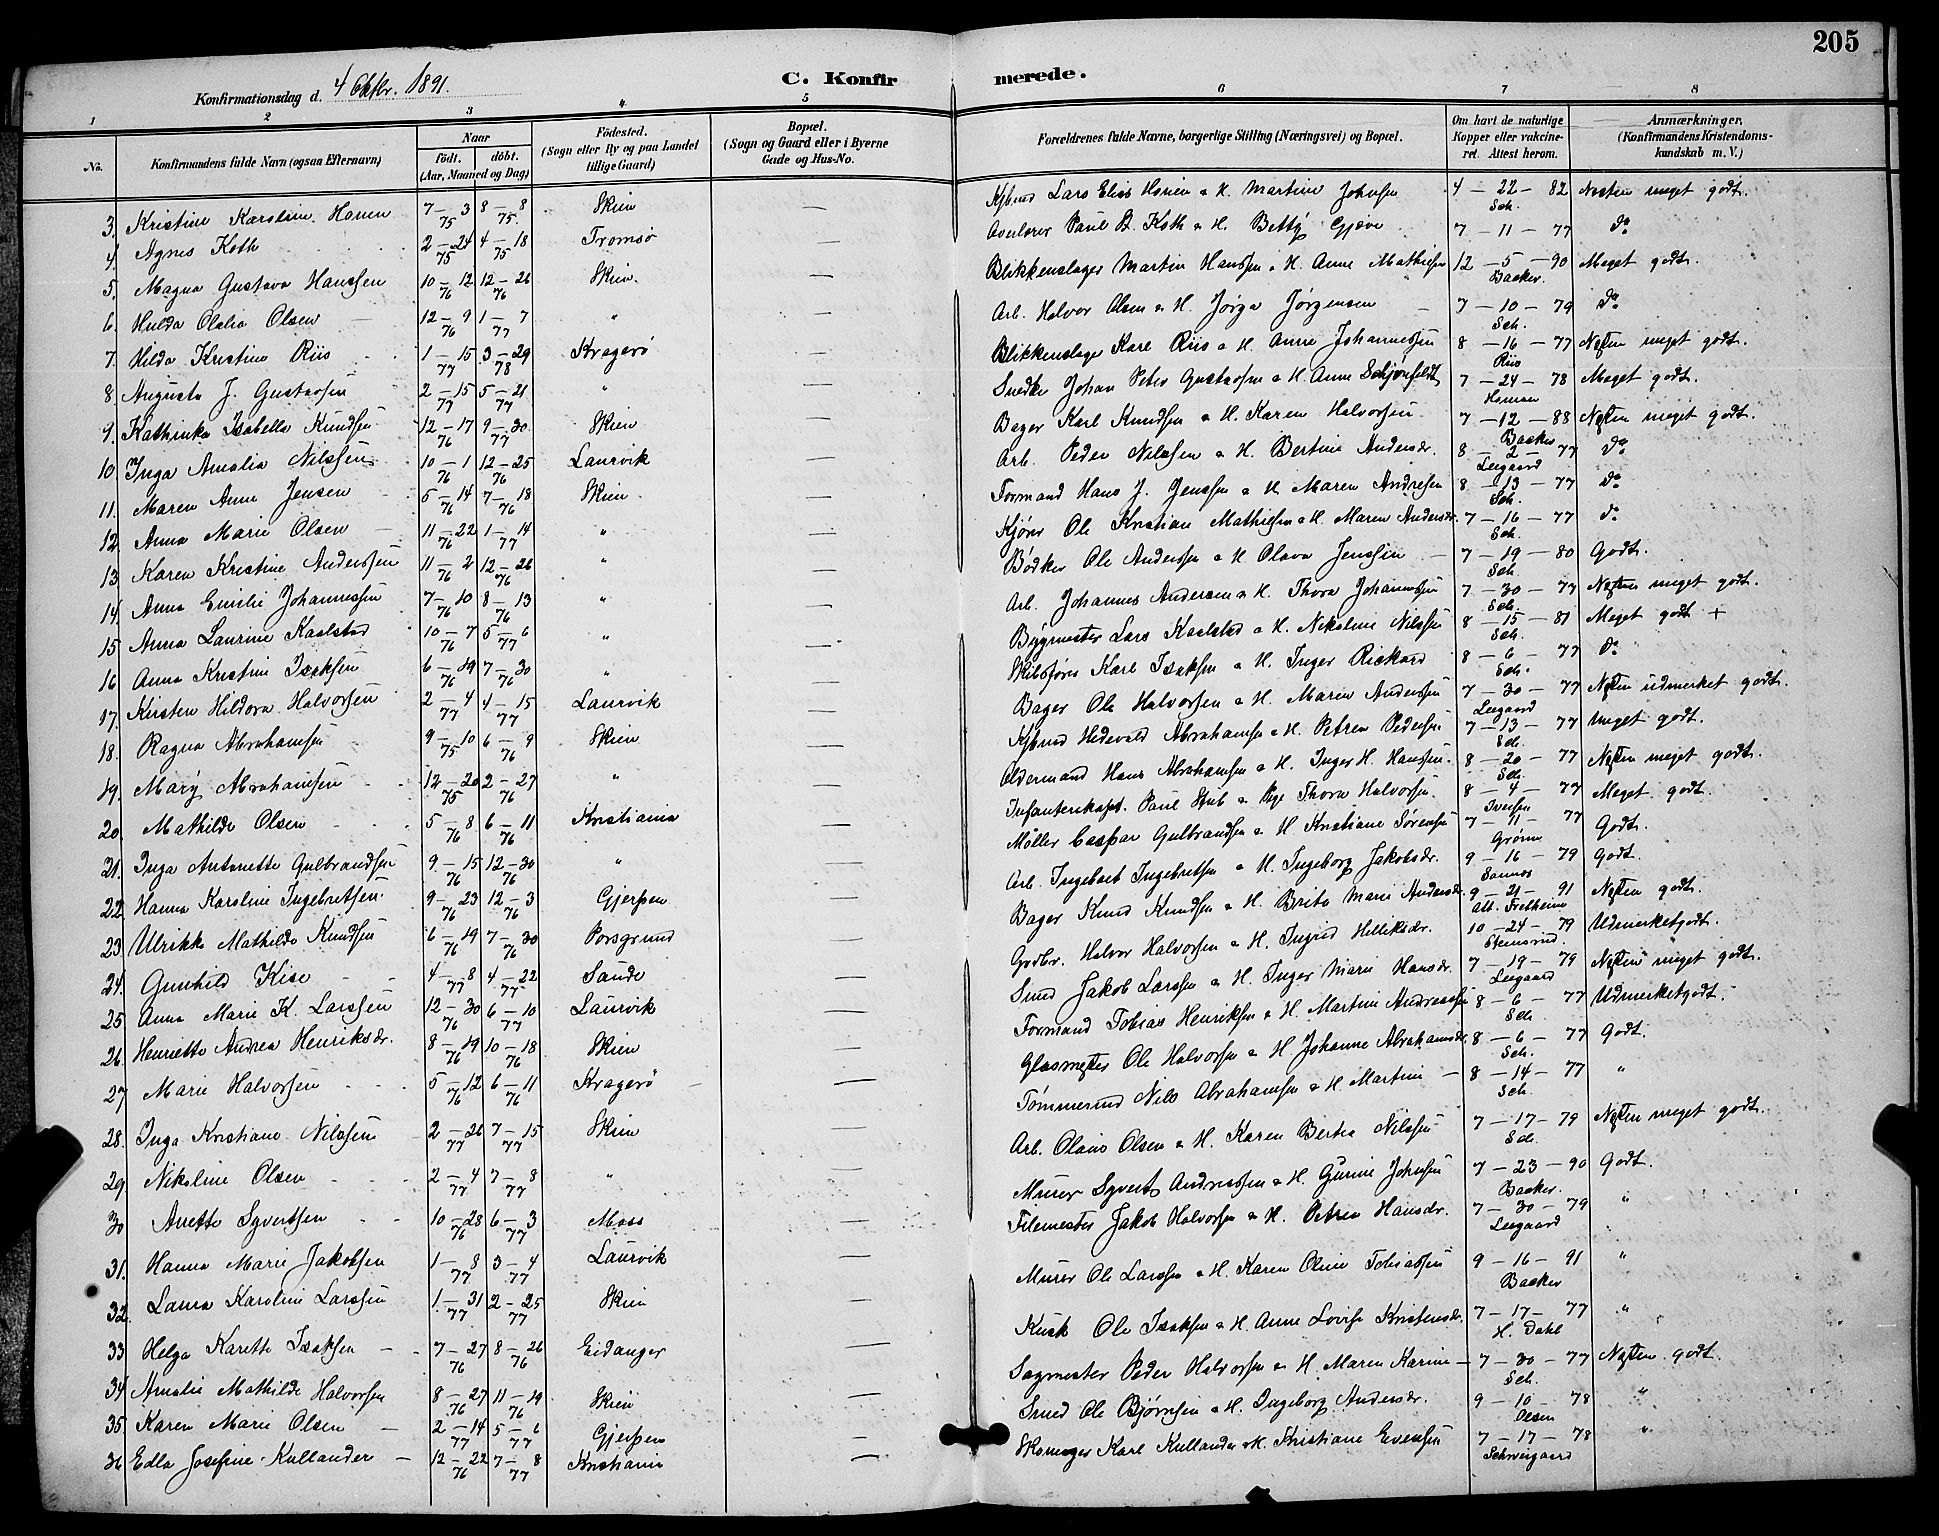 205
Konfirmationsdag d. 4 Oktbr. 1891.
C. Konfirmerede.
1 2 3 4 5 6 7 8
No.
Konfirmandens fulde Navn (ogsaa Efternavn)
Naar
födt. döbt.
(Aar, Maaned og Dag)
Födested.
(Sogn eller By og paa Landet
tillige Gaard)
Bopæl.
(Sogn og Gaard eller i Byerne
Gade og Hus-No.
Forældrenes fulde Navne, borgerlige Stilling (Næringsvei) og Bopæl.
Om havt de naturlige
Kopper eller vakcine-
ret. Attest herom.
Anmærkninger.
(Konfirmandens Kristendoms-
kundskab m. V.)
3. Kristine Karoline 7–3 75 8–8 75 Skien — Lars Elias & H. Martine Johnsen 4–22–82 Sch. Næsten meget godt.
4. Agnes Koth 2–24 75 4–18 75 Tromsø — Paul B. Koth & H. Betty Gjæve 7–11–77 Do
5. Magna Gustava Hanssen 10–12 76 12–26 76 Skien. — Blikkenslager Martin Hanssen & H. Anne Mathisen 12–5–90 Backer. Meget godt.
6. Hulda Olalia Olsen 12–9 76 1–7 77 " — Arb. Halvor Olsen & H. Jørga Jørgensen 7–10–79 Sch. Do
7. Hilda Kristine Riis 1–15 77 3–29 78 Kragerø — Blikkenslager Karl Riis & H. Anne Johannessen 8–16–77 Riis Næsten meget godt.
8. Augusta J. Gustavsen 2–15 77 5–21 77 " — Snedker Johan Peter Gustavsen & H. Anne Schjønfeldt 7–24–78 Homan Meget godt.
9. Kathinka Isabella Knudsen 12–17 76 9–30 77 Skien — Bager Karl Knudsen & H. Karen Halvorsen 7–12–88 Backer Næsten meget godt.
10 Inga Amalia Nilssen 10–1 76 12–25 76 Laurvik — Arb. Peder Nilssen & H. Bertine Andersdr. 8–2–77 Leegaard Do
11. Maren Anne Jensen 5–14 76 7–18 76 Skien — Formand Hans J. Jenssen & H. Maren Andresen 8–13–77 Sch. Do
12. Anna Marie Olsen 11–22 76 1–14 77 " — Kjører Ole Kristian Mathisen & H. Maren Andersdr. 7–16–77 Sch. Do
13 Karen Kristine Anderssen 11–2 76 12–26 76 " — Bødker Ole Anderssen & H. Olava Jenssen 7–19–80 Sch. Godt.
14. Anna Emilie Johannessen 7–10 76 8–13 76 " — Arb. Johannes Andersen & H. Thora Johannessen 7–30–77 Sch. Næsten meget godt.
15 Anna Laurine Kaalstad 10–7 76 5–6 77 " — Bygmester Lars Kaalstad & H. Nikoline Nilssen 8–15–81 Sch. Meget godt +
16 Anna Kristine Isaksen 6–19 76 7–30 76 " — Skibsfører Karl Isaksen & H. Inger Rickard 8–6–77 Sch. Do
17. Kirsten Hildora Halvorsen 2–4 77 4–15 77 Laurvik — Bager Ole Halvorsen & H. Maren Anderssen 7–30–77 Leegaard Næsten udmerket godt.
18. Ragna Abrahamsen 9–10 75 6–9 76 Skien — Hedevald Abrahamsen & H. Petrea Pedersen 7–13–77 Sch. Meget godt.
19. Mary Abrahamsen 12–20 75 2–27 76 " — Oldermand Hans Abrahamsen & H. Inger H. Hanssen. 8–20–77 Sch. Næsten meget godt.
20. Mathilde Olsen 5–8 76 6–11 76 Kristiania — Infanterikapt. Paul Stub & Pige Thora Halvorsen. 8–4–77 Iversen Meget godt.
21. Inga Antonette Gulbrandsen 9–15 76 12–30 76 " — Møller Caspar Gulbrandsen & H. Kristiane Sørensen 7–11–77 Grønn Godt.
22 Hanna Karoline Ingebretsen 9–23 76 12–3 76 Gjerpen — Arb. Ingebret Ingebretsen & H. Ingeborg Jakobsdr. 9–16–79 Godt.
23 Ulrikke Mathilde Knudsen 6–19 76 7–30 76 Porsgrund — Bager Knud Knudsen & H. Brita Marie Andersdr. 9–21–91 Att. Fretheim Næsten godt.
24. Gunhild Kise 4–8 77 4–22 77 Sande — Gdbr. Halvor Halvorsen & H. Ingrid Helliksdr. 10–24–79 Stensrud Udmerket godt.
25 Anna Marie K. Larssen 12–30 76 6–10 77 Laurvik — Smed Jakob Larssen & H. Inger Marie Hansdr. 7–19–79 Leegaard Næsten meget godt.
26. Henriette Andrea Henriksdr. 8–19 76 10–18 76 Skien — Formand Tobias Henriksen & H. Martine Andreassen 8–6–77 Sch. Udmerket godt.
27 Marie Halvorsen 5–12 76 6–11 76 Kragerø — Glasmester Ole Halvorsen & H. Johanne Abrahamsdr. 8–6–77 Sch. Godt.
28. Inga Kristiane Nilssen 2–26 77 7–15 77 Skien — Tømmermd Nils Abrahamsen & H. Martine — 8–14–77 Sch. "
29 Nikoline Olsen 2–4 77 7–8 77 " — Arb. Olaus Olsen & H. Karen Bertea Nilssen 7–17–79 Sch. Næsten meget godt.
30 Anette Syvertsen 10–28 76 6–3 77 Moss — Murer Syvert Andreassen & H. Gurine Johnsen 7–23–90 Backer. Godt.
31. Hanna Marie Jakobsen 1–8 77 3–4 77 Laurvik — Filemester Jakob Halvorsen & H. Petrea Hansdr. 7–30–79 Leegaard "
32. Laura Karoline Larssen 1–31 77 2–25 77 Skien — Murer Ole Larssen & H. Karen Oline Tobiassen 9–16–91 Backer "
33 Helga Karette Isaksen 7–27 76 8–26 76 Eidanger — Kusk Ole Isaksen & H. Anne Lovise Kristensdr. 7–17–77 H. Dahl "
34 Amalie Mathilde Halvorsen 8–27 76 11–19 76 Skien — Sagmester Peder Halvorsen & H. Maren Karine — 7–30–77 Sch. Næsten godt.
35. Karen Marie Olsen 2–14 77 5–6 77 Gjerpen — Smed Ole Bjørnsen & H. Ingeborg Andersdr. 9–10–78 Olsen "
36 Edla Josefine Kullander 12–22 76 7–8 77 Kristiania — Skomager Karl Kullander & H. Kristiane Evensen 7–17–78 Schweigaard "